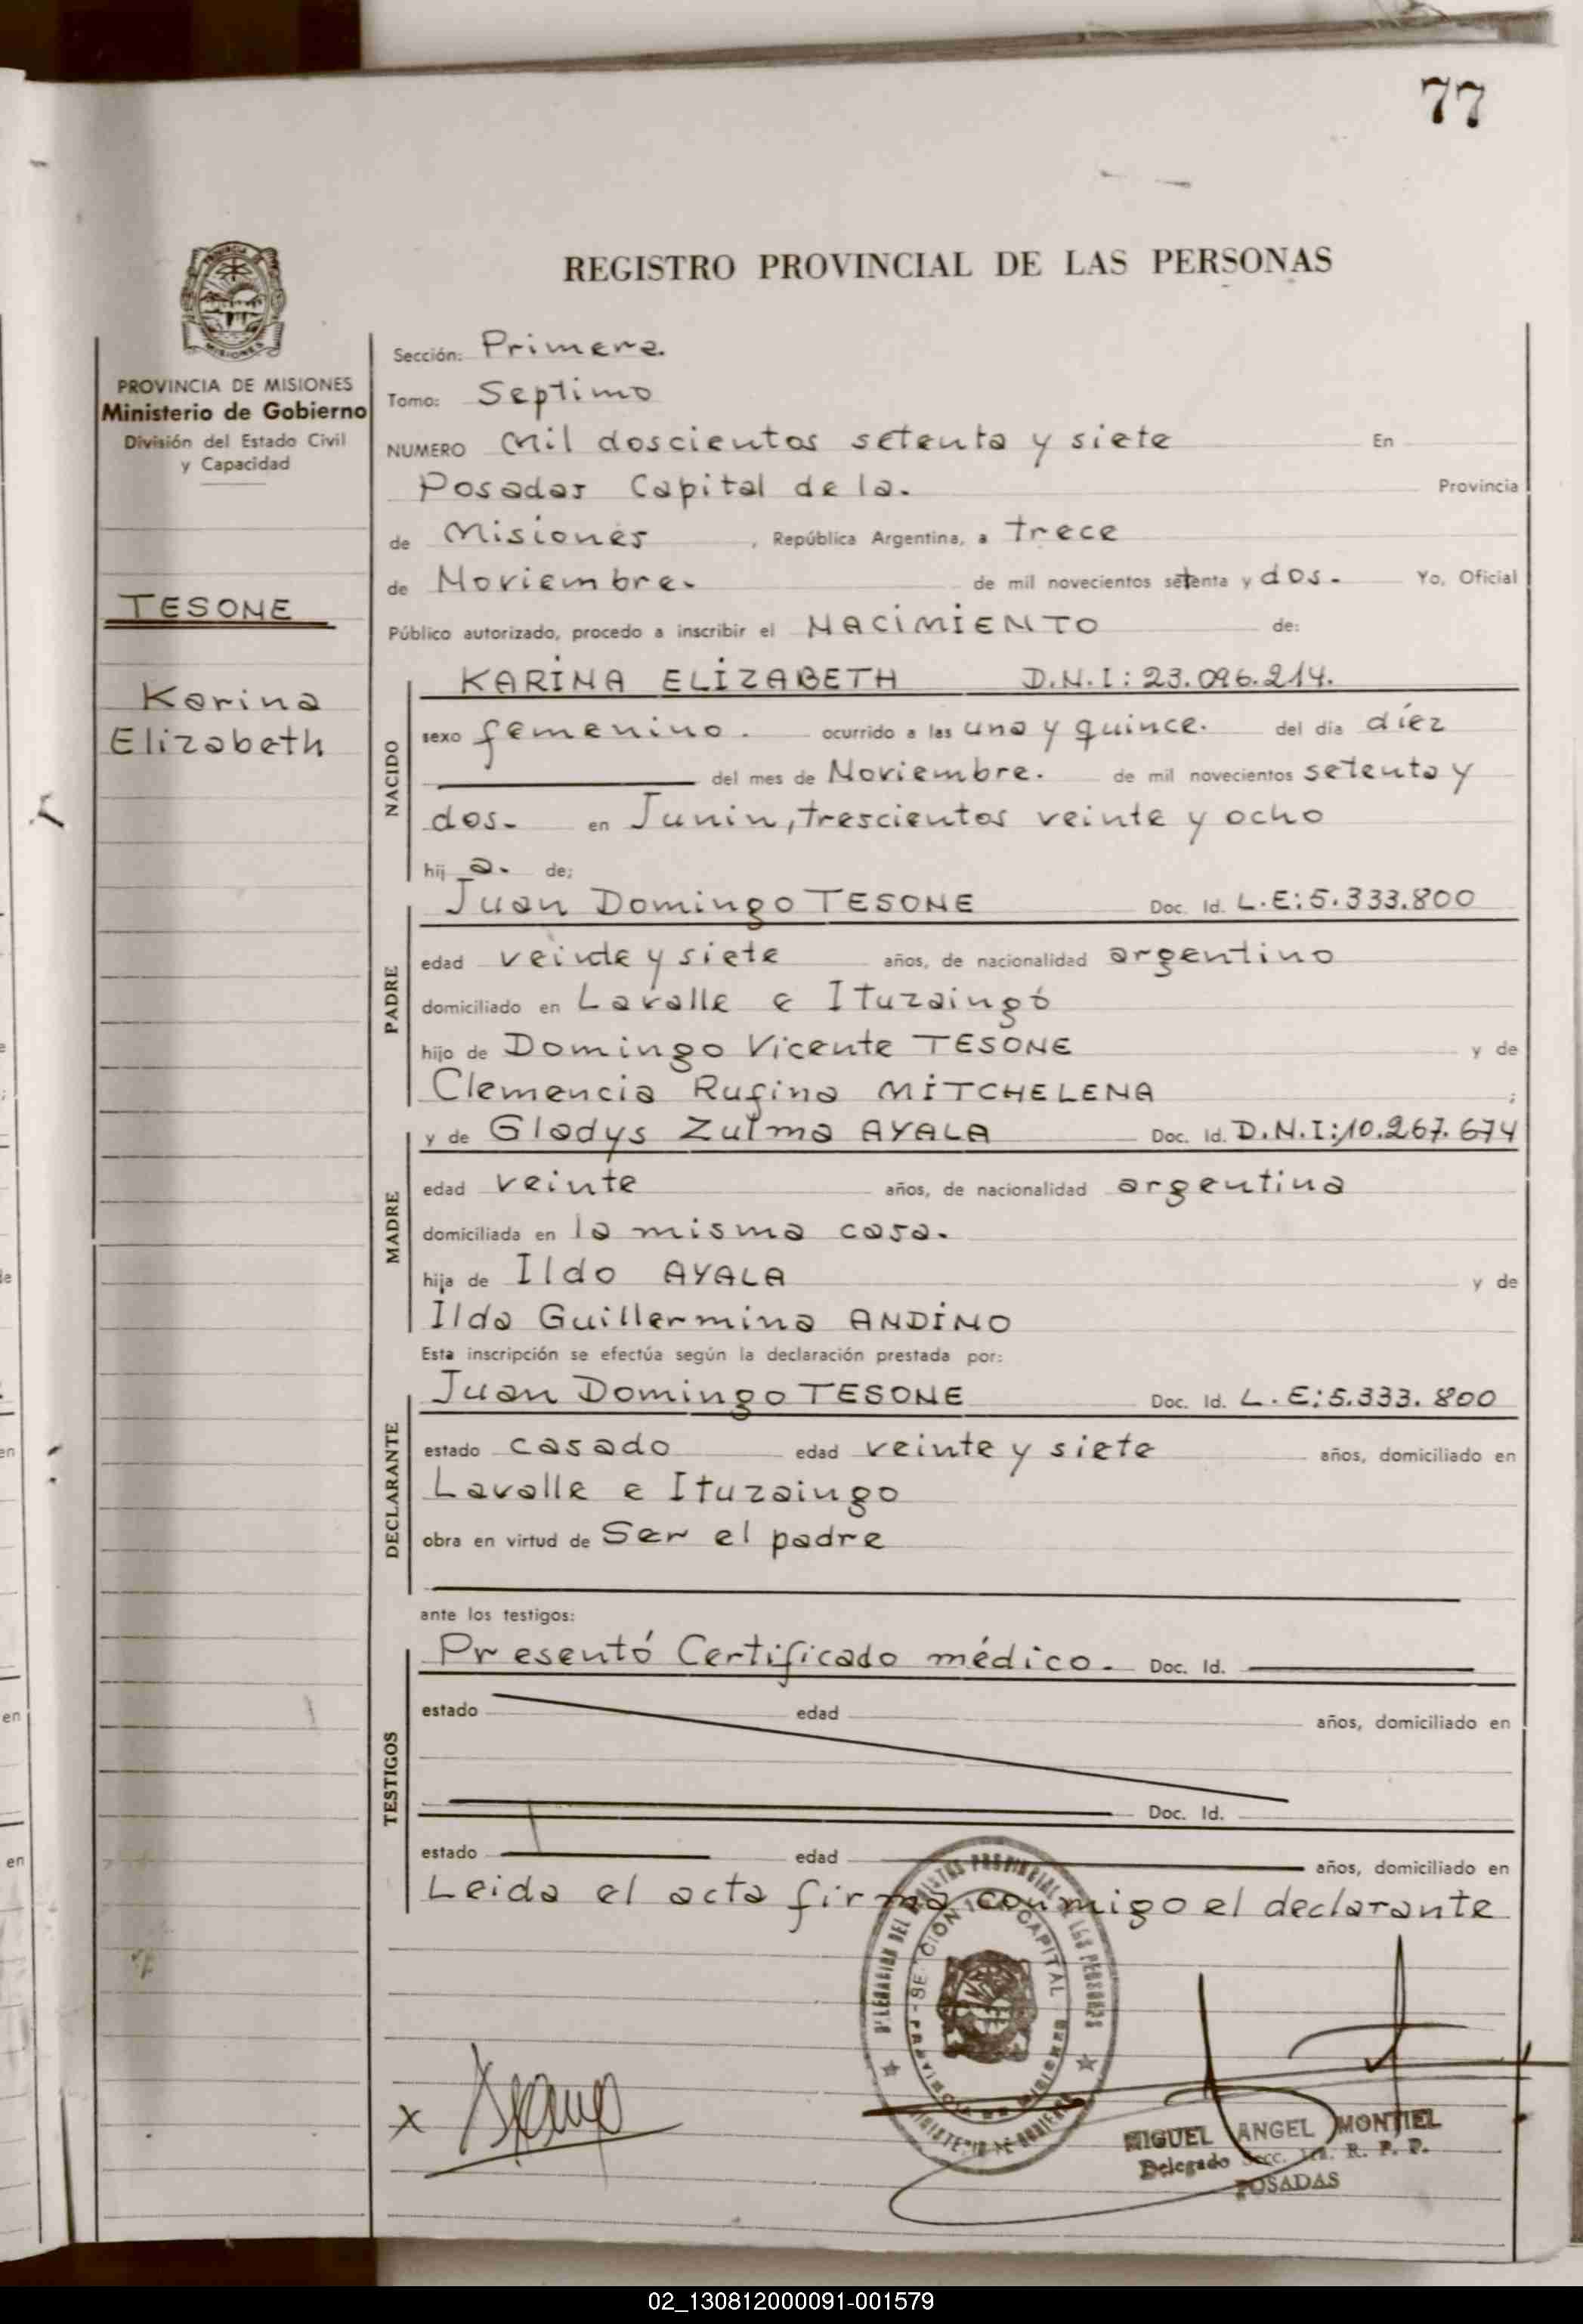 77
REGISTRO PROVINCIAL DE LAS PERSONAS
PROVINCIA DE MISIONES
Ministerio de Gobierno
División del Estado Civil
y Capacidad
TESONE
Karina
Elizabeth
Sección: Primera.
Tomo: Septimo
NUMERO Mil doscientos setenta y siete En
Posadas Capital de la. Provincia
de Misiones , República Argentina, a trece
de Noviembre. de mil novecientos setenta y dos. Yo, Oficial
Público autorizado, procedo a inscribir el NACIMIENTO de:
NACIDO
KARINA ELIZABETH D.N.I: 23.096.214.
sexo femenino. ocurrido a las una y quince. del día díez
del mes de Noviembre. de mil novecientos setenta y
dos. en Junin, trescientos veinte y ocho
hij a. de;
PADRE
Juan Domingo TESONE Doc. Id. L.E: 5.333.800
edad veinte y siete años, de nacionalidad argentino
domiciliado en Lavalle e Ituzaingó
hijo de Domingo Vicente TESONE y de
Clemencia Rufina MITCHELENA ;
MADRE
y de Gladys Zulma AYALA Doc. Id. D.N.I: 10.267.674
edad veinte años, de nacionalidad argentina
domiciliada en la misma casa.
hija de Ildo AYALA y de
Ilda Guillermina ANDINO
Esta inscripción se efectúa según la declaración prestada por:
DECLARANTE
Juan Domingo TESONE Doc. Id. L.E: 5.333.800
estado casado edad veinte y siete años, domiciliado en
Lavalle e Ituzaingo
obra en virtud de Ser el padre
ante los testigos:
TESTIGOS
Presentó Certificado médico. Doc. Id.
estado edad años, domiciliado en
Doc. Id.
estado edad años, domiciliado en
Leida el acta firma conmigo el declarante
x
MIGUEL ANGEL MONTIEL
Delegado Secc. 1ra. R. P. P.
POSADAS
02_130812000091-001579